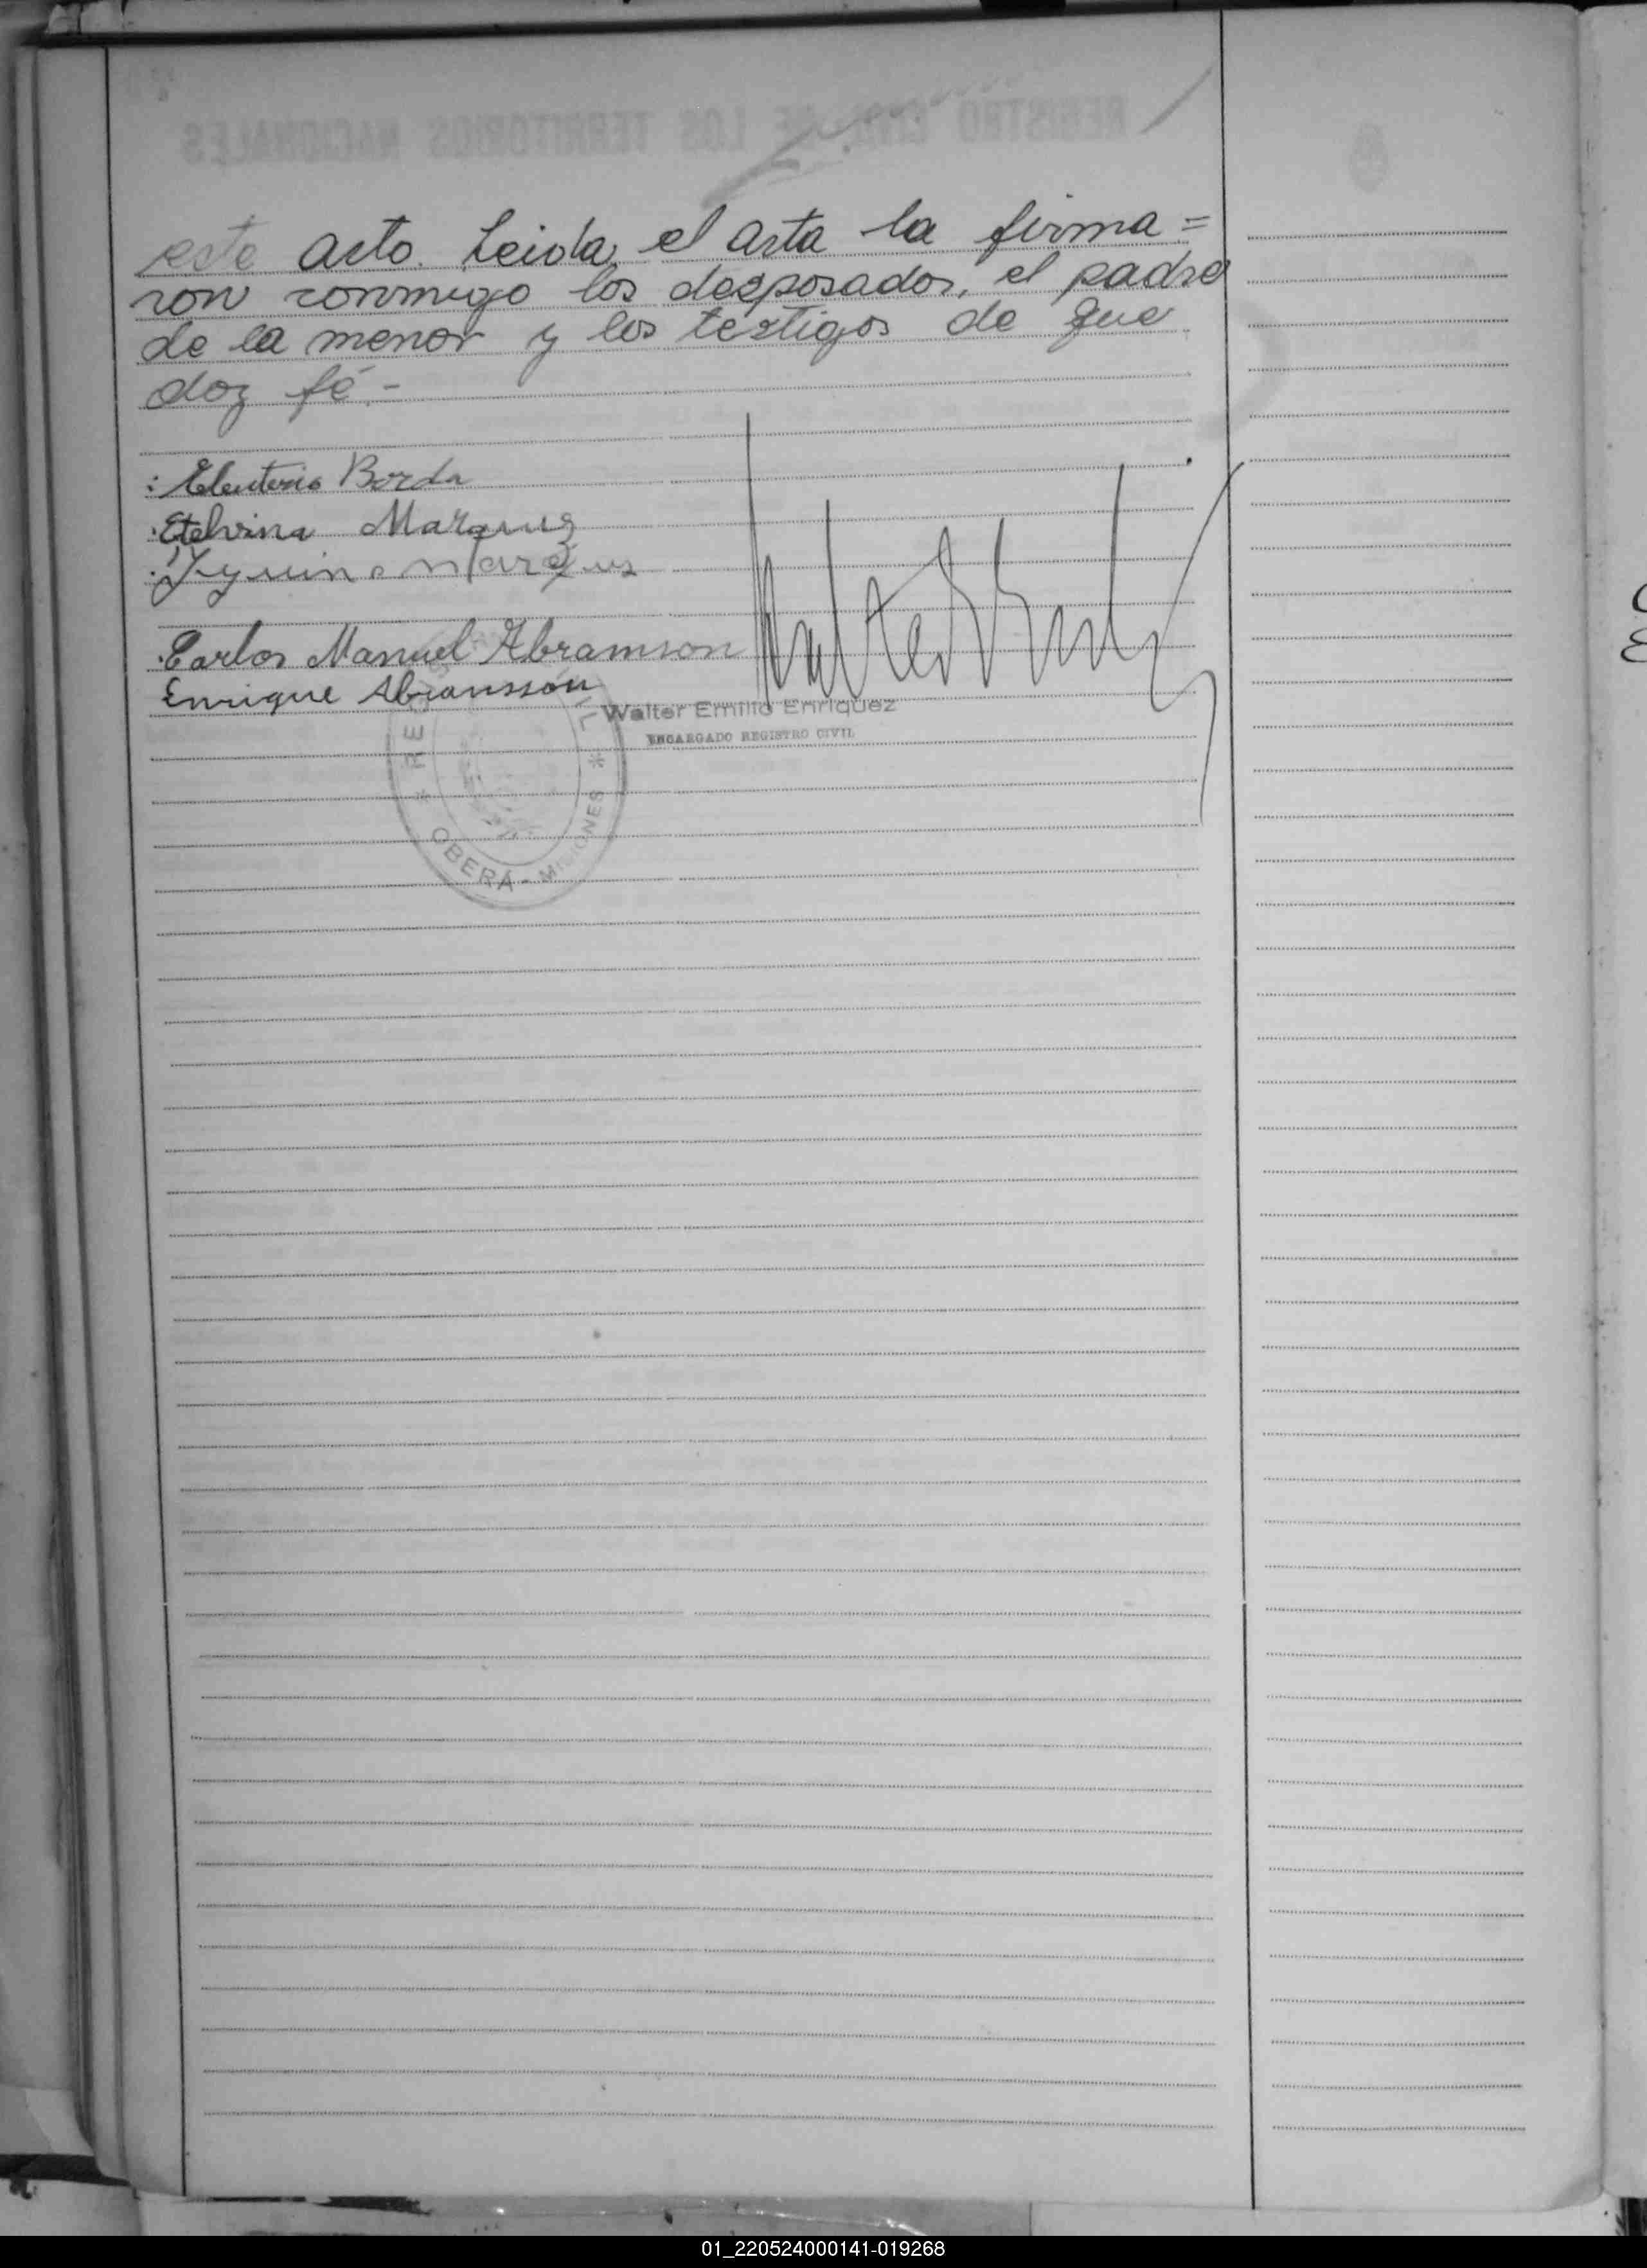 este acto. Leida el acta la firma=
ron conmigo los desposados, el padre
de la menor y los testigos de que
doy fé.-
: Eleuterio Borda
Etelvina Marquez
Marques
Carlos Manuel Abramson
Enrique Abramsson
Walter Emilio Enriquez
ENCARGADO REGISTRO CIVIL
OBERÁ - MISIONES
REGISTRO CIVIL DE LOS TERRITORIOS NACIONALES
01_220524000141-019268